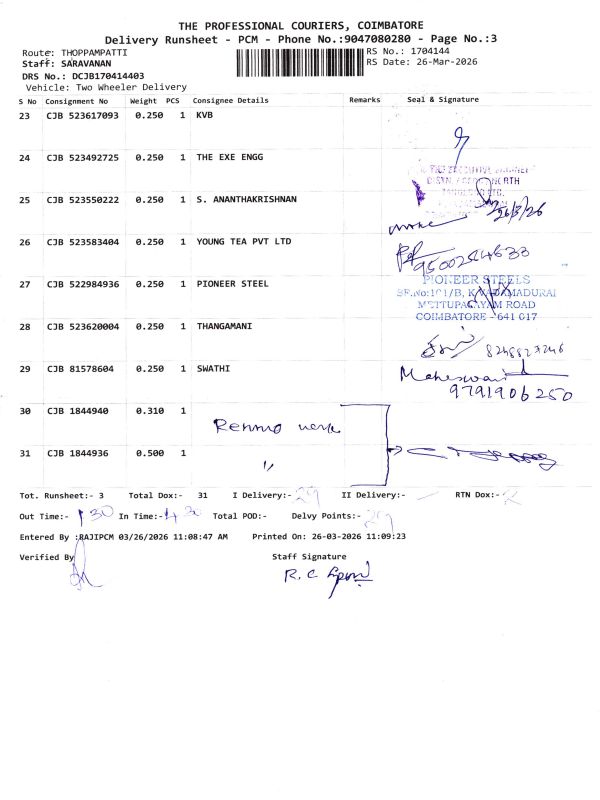 THE PROFESSIONAL COURIERS, COIMBATORE
Delivery Runsheet - PCM - Phone No.:9047080280 - Page No.:3
Route: THOPPAMPATTI
RS No.: 1704144
Staff: SARAVANAN
RS Date: 26-Mar-2026
DRS No.: DCJB170414403
Vehicle: Two Wheeler Delivery
S No Consignment No Weight PCS Consignee Details Remarks Seal & Signature
23 CJB 523617093 0.250 1 KVB
24 CJB 523492725 0.250 1 THE EXE ENGG
25 CJB 523550222 0.250 1 S. ANANTHAKRISHNAN
26/3/26
26 CJB 523583404 0.250 1 YOUNG TEA PVT LTD
9500254633
27 CJB 522984936 0.250 1 PIONEER STEEL
PIONEER STEELS
SF.No:101/B, K.VADAMADURAI
METTUPALAYAM ROAD
COIMBATORE - 641 017
28 CJB 523620004 0.250 1 THANGAMANI
29 CJB 81578604 0.250 1 SWATHI
Maheswari
9791906250
30 CJB 1844940 0.310 1
31 CJB 1844936 0.500 1
Tot. Runsheet:- 3 Total Dox:- 31 I Delivery:- 29 II Delivery:- RTN Dox:-
Out Time:- 1 30 In Time:- 4 30 Total POD:- Delvy Points:- 29
Entered By :RAJIPCM 03/26/2026 11:08:47 AM Printed On: 26-03-2026 11:09:23
Verified By Staff Signature